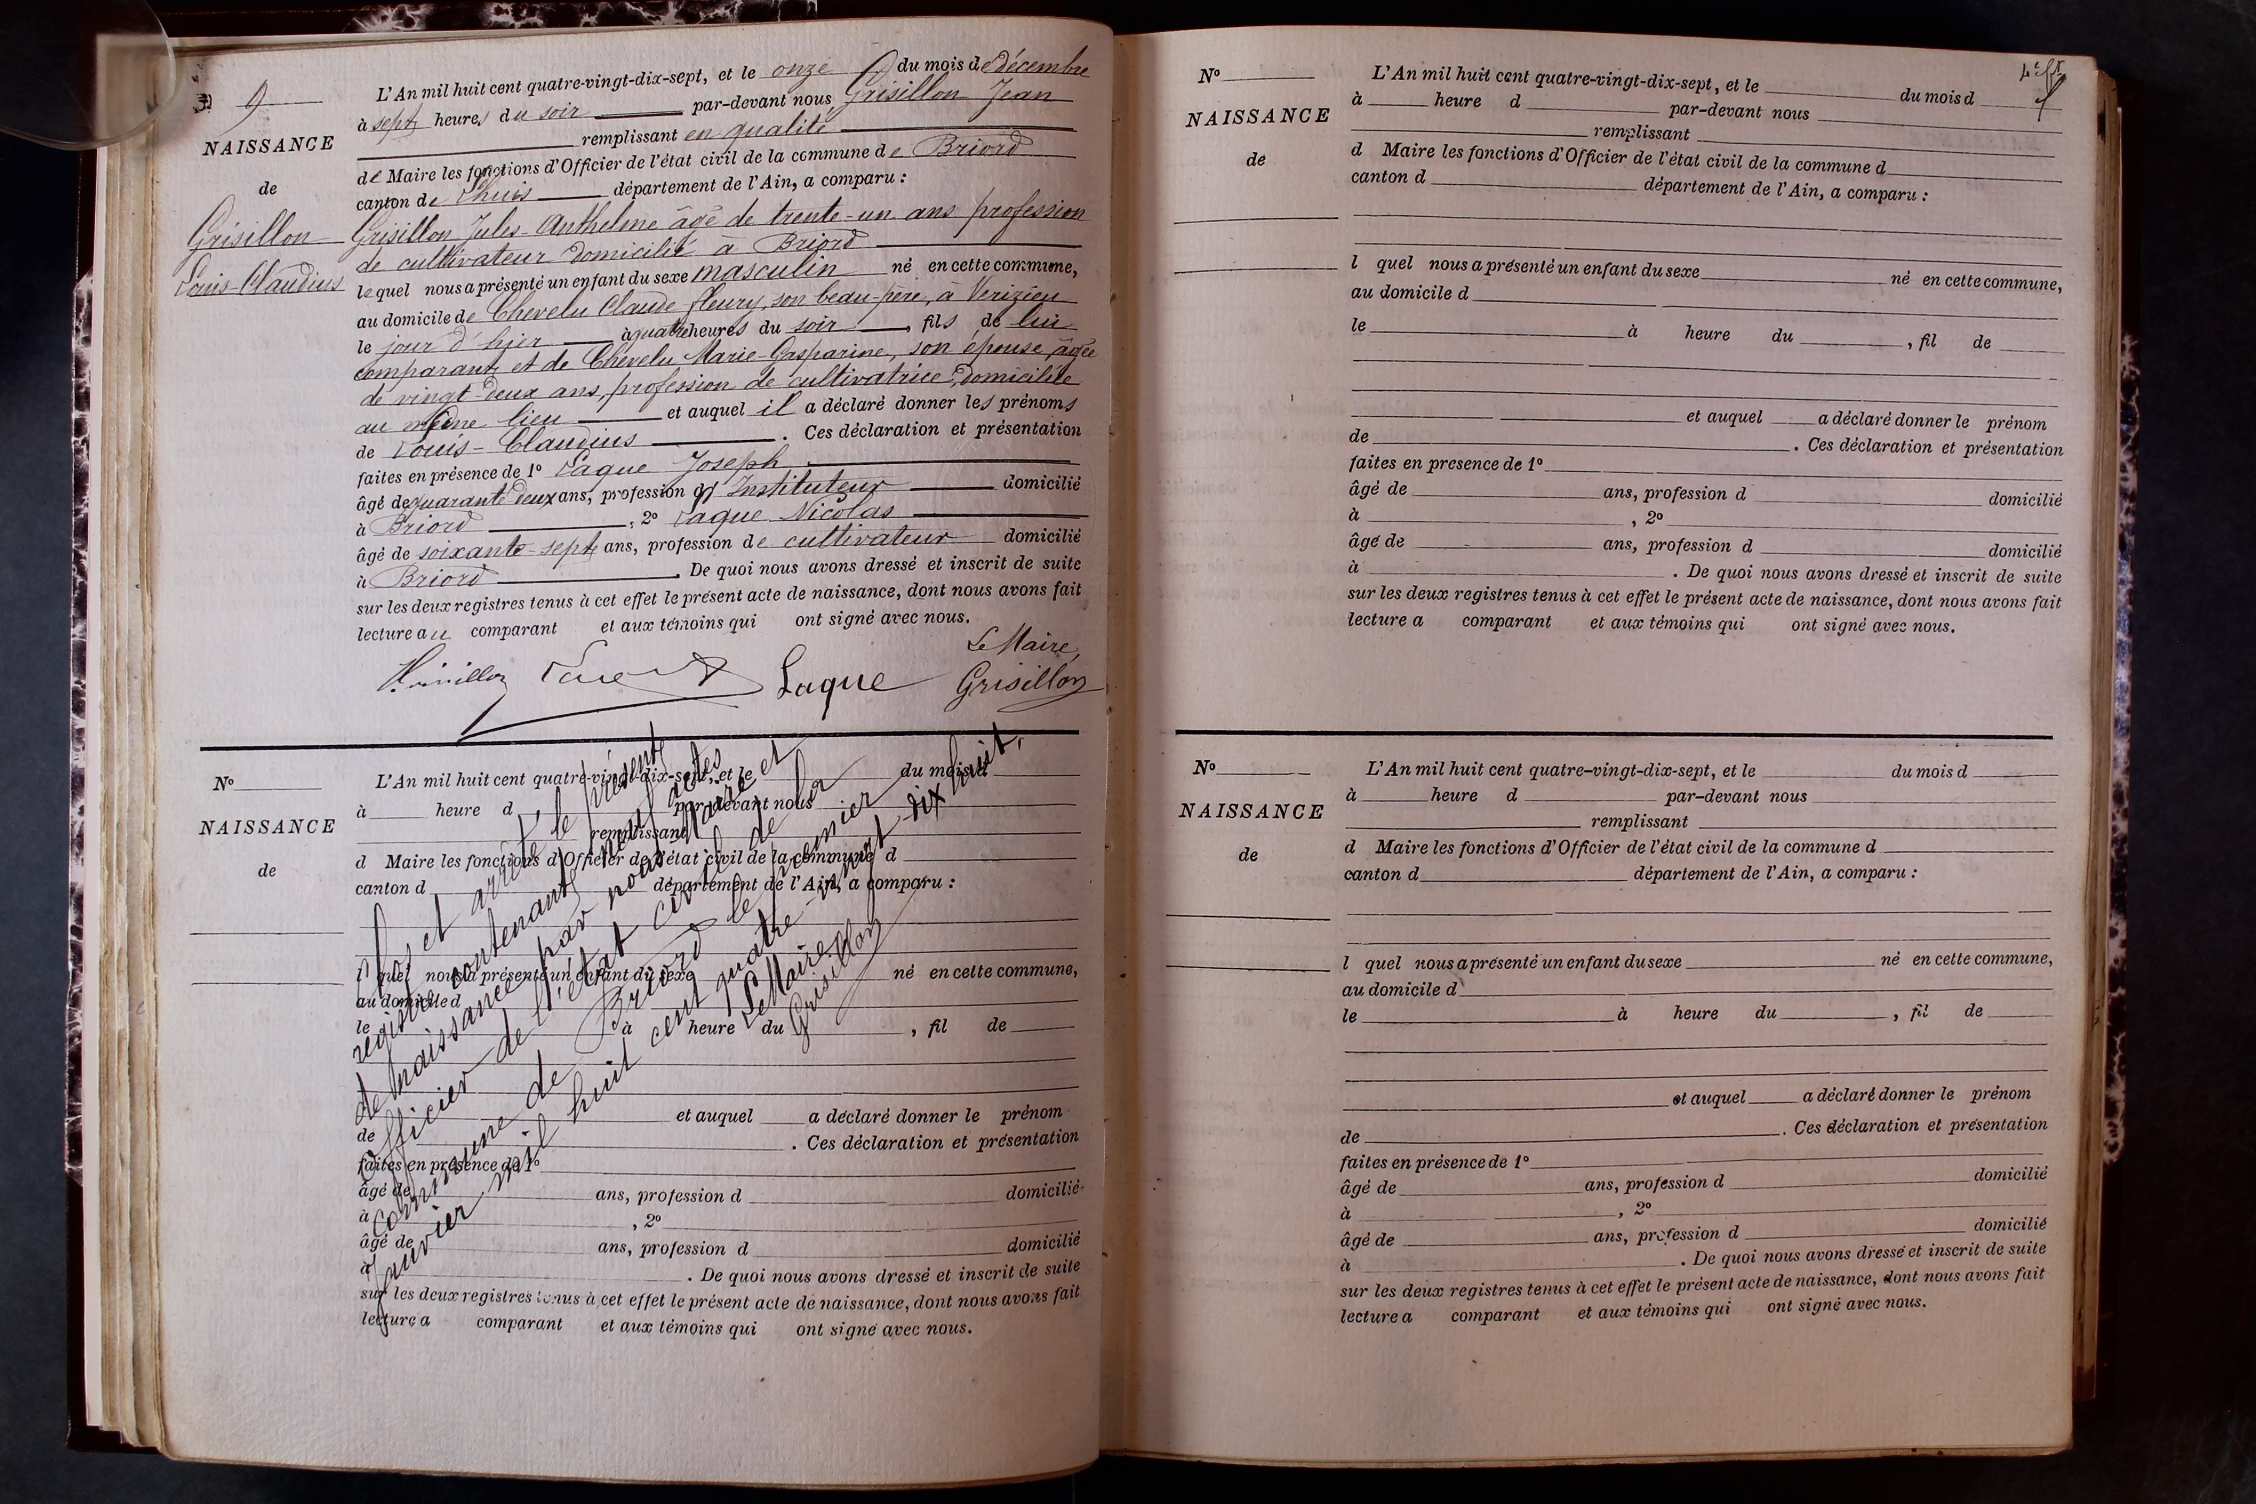 9
NAISSANCE
de
Grisillon
Louis-Claudius
L'An mil huit cent quatre-vingt-dix-sept, et le onze du mois de décembre
à sept heures du soir par-devant nous Grisillon Jean
remplissant en qualité
de Maire les fonctions d'Officier de l'état civil de la commune de Briord
canton de Lhuis département de l'Ain, a comparu :
Grisillon Jules-Anthelme âgé de trente-un ans profession
de cultivateur domicilié à Briord
lequel nous a présenté un enfant du sexe masculin né en cette commune,
au domicile de Chevelu Claude fleury, son beau-père, à Verizieu
le jour d'hier à quatre heures du soir, fils de lui
comparant et de Chevelu Marie-Gasparine, son épouse, âgée
de vingt-deux ans, profession de cultivatrice, domiciliée
au même lieu et auquel il a déclaré donner les prénoms
de Louis-Claudius. Ces déclaration et présentation
faites en présence de 1º Laque Joseph
âgé de quarante deux ans, profession d' Instituteur domicilié
à Briord, 2º Laque Nicolas
âgé de soixante-sept ans, profession de cultivateur domicilié
à Briord. De quoi nous avons dressé et inscrit de suite
sur les deux registres tenus à cet effet le présent acte de naissance, dont nous avons fait
lecture au comparant et aux témoins qui ont signé avec nous.
Le Maire,
Laque Grisillon
Nº
NAISSANCE
de
L'An mil huit cent quatre-vingt-dix-sept, et le du mois d
à heure d par-devant nous
remplissant
d Maire les fonctions d'Officier de l'état civil de la commune d
canton d département de l'Ain, a comparu :
l quel nous a présenté un enfant du sexe né en cette commune,
au domicile d
le à heure du , fil de
et auquel a déclaré donner le prénom
de . Ces déclaration et présentation
faites en présence de 1º
âgé de ans, profession d domicilié
à , 2º
âgé de ans, profession d domicilié
à . De quoi nous avons dressé et inscrit de suite
sur les deux registres tenus à cet effet le présent acte de naissance, dont nous avons fait
lecture a comparant et aux témoins qui ont signé avec nous.
Clos et arrêté le présent
registre contenant neuf actes
de naissance par nous Maire et
officier de l'état civil de la
commune de Briord le premier
janvier mil huit cent quatre-vingt-dix huit.
Le Maire,
Grisillon
Nº
NAISSANCE
de
L'An mil huit cent quatre-vingt-dix-sept, et le du mois d
à heure d par-devant nous
remplissant
d Maire les fonctions d'Officier de l'état civil de la commune d
canton d département de l'Ain, a comparu :
l quel nous a présenté un enfant du sexe né en cette commune,
au domicile d
le à heure du , fil de
et auquel a déclaré donner le prénom
de . Ces déclaration et présentation
faites en presence de 1º
âgé de ans, profession d domicilié
à , 2º
âgé de ans, profession d domicilié
à . De quoi nous avons dressé et inscrit de suite
sur les deux registres tenus à cet effet le présent acte de naissance, dont nous avons fait
lecture a comparant et aux témoins qui ont signé avec nous.
Nº
NAISSANCE
de
L'An mil huit cent quatre-vingt-dix-sept, et le du mois d
à heure d par-devant nous
remplissant
d Maire les fonctions d'Officier de l'état civil de la commune d
canton d département de l'Ain, a comparu :
l quel nous a présenté un enfant du sexe né en cette commune,
au domicile d
le à heure du , fil de
et auquel a déclaré donner le prénom
de . Ces déclaration et présentation
faites en présence de 1º
âgé de ans, profession d domicilié
à , 2º
âgé de ans, profession d domicilié
à . De quoi nous avons dressé et inscrit de suite
sur les deux registres tenus à cet effet le présent acte de naissance, dont nous avons fait
lecture a comparant et aux témoins qui ont signé avec nous.